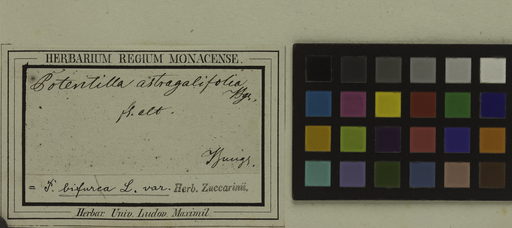 HERBARIUM REGIUM MONACENSE.
Potentilla astragalifolia
Bge.
fl. alt.
Bunge.
= P. bifurca L. var. Herb. Zuccarinii.
Herbar. Univ. Ludov. Maximil.